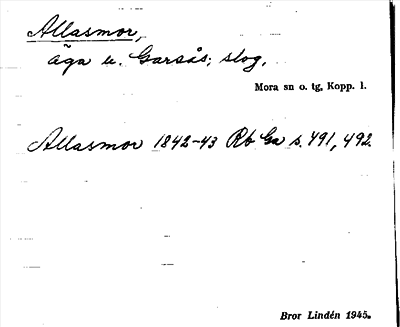 Allasmor,
äga u. Garsås; slog.
Mora sn o. tg, Kopp. l.
Allasmor 1842-43 Rb Ga s. 491, 492.
Bror Lindén 1945.